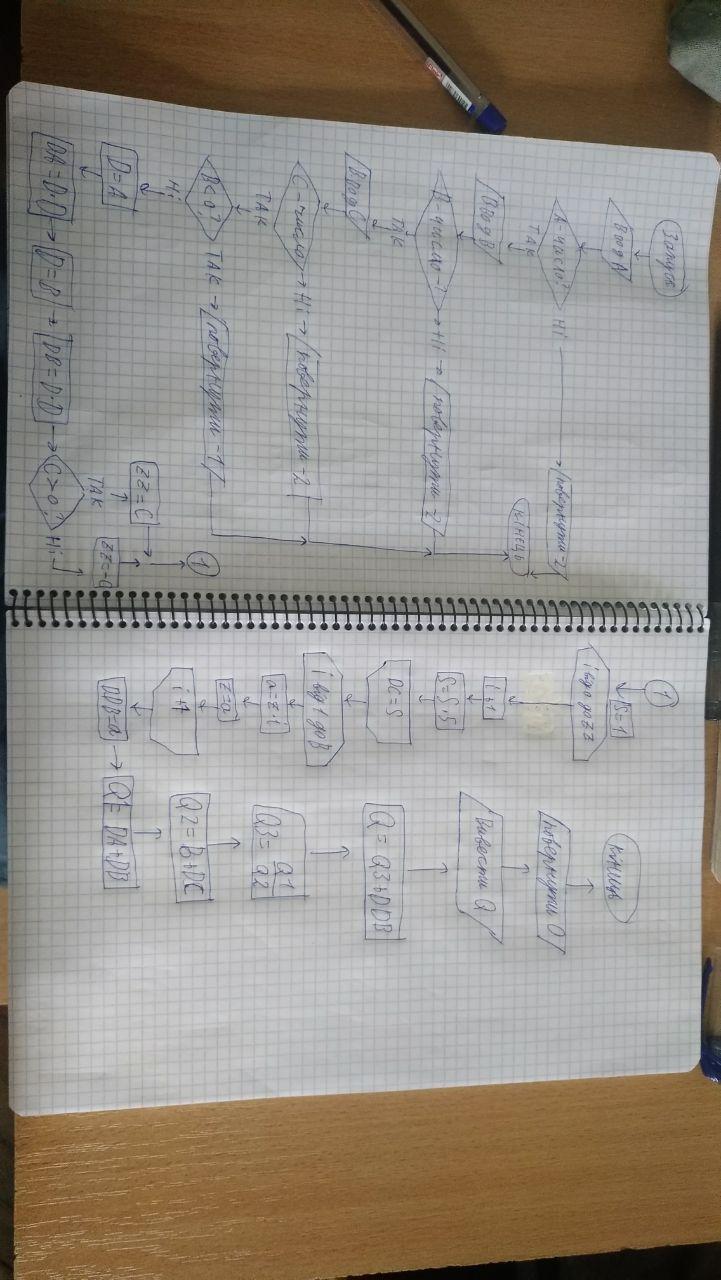 Запуск
Ввод А
А-число? Ні повернути-2
ТАК
кінець
Ввод В
В-число-? Ні повернути -2
ТАК
Ввод С
С-число Ні повернути -2
ТАК
В<0? ТАК повернути -1
Ні
D=A
DA=D·D D=B DB=D·D C>0? Ні
ТАК
ZZ=C
ZZ=-C
1
1
S=1
і від 0 до ZZ
i+1
S=S·S
DC=S
і від 1 до В
a=z·i
z=a
i+1
DDB=a
Q1= DA+DB
Q2= B+DC
Q3= Q1/Q2
Q= Q3+DDB
Вивести Q
повернути 0
кінець